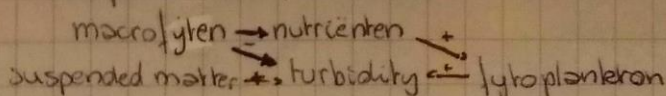 macrofyten → nutriënten +
suspended matter +→ turbidity ←+ fytoplankton